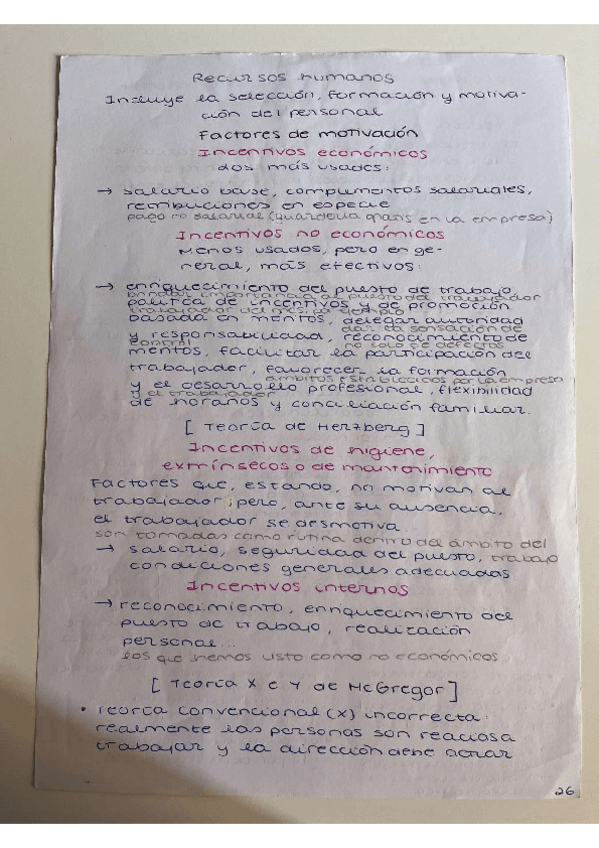 Recursos humanos
Incluye la selección, formación y motiva-
ción del personal
Factores de motivación
Incentivos económicos
Los más usados:
→ salario base, complementos salariales,
retribuciones en especie
pago no salarial (guardería gratis en la empresa)
Incentivos no económicos
Menos usados, pero en ge-
neral, más efectivos:
→ enriquecimiento del puesto de trabajo,
brindar importancia al puesto del trabajador
política de incentivos y de promoción
trabajador del mes, por ejemplo
basada en méritos, delegar autoridad
dar la sensación de
y responsabilidad, reconocimiento de
control no solo de defectos
méritos, facilitar la participación del
trabajador, favorecer la formación
ámbitos establecidos por la empresa
y el desarrollo profesional, flexibilidad
y el trabajador
de horarios y conciliación familiar.
[ Teoría de Herzberg ]
Incentivos de higiene,
extrínsecos o de mantenimiento
Factores que, estando, no motivan al
trabajador; pero, ante su ausencia,
el trabajador se desmotiva.
son tomadas como rutina dentro del ámbito del
→ salario, seguridad del puesto, trabajo
condiciones generales adecuadas
Incentivos internos
→ reconocimiento, enriquecimiento del
puesto de trabajo, realización
personal...
los que hemos visto como no económicos
[ Teoría X e Y de McGregor ]
• Teoría convencional (X) incorrecta:
realmente las personas son reacias a
trabajar y la dirección debe actuar
26